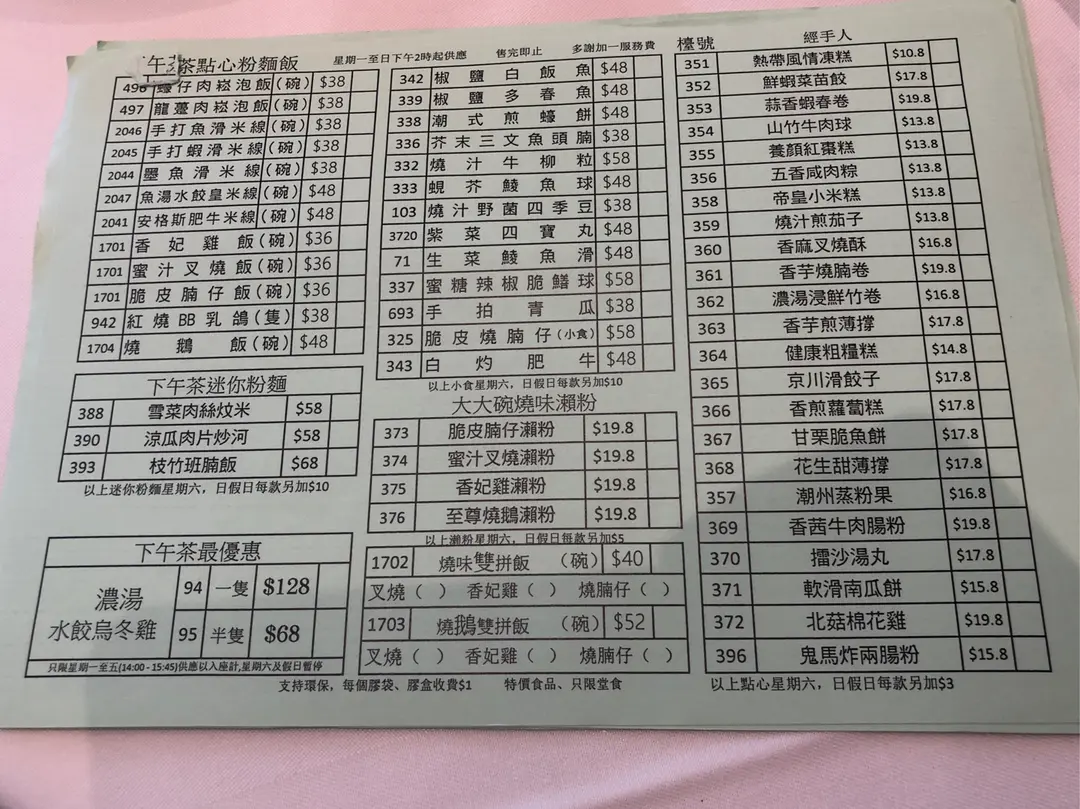 茶點心粉麵飯 星期一至日下午2時起供應 售完即止 多謝加一服務費 檯號 經手人
仔肉崧泡飯(碗) $38
497 龍躉肉崧泡飯(碗) $38
2046 手打魚滑米線(碗) $38
2045 手打蝦滑米線(碗) $38
2044 墨魚滑米線(碗) $38
2047 魚湯水餃皇米線(碗) $48
2041 安格斯肥牛米線(碗) $48
1701 香妃雞飯(碗) $36
1701 蜜汁叉燒飯(碗) $36
1701 脆皮腩仔飯(碗) $36
942 紅燒BB乳鴿(隻) $38
1704 燒鵝飯(碗) $48
下午茶迷你粉麵
388 雪菜肉絲炆米 $58
390 涼瓜肉片炒河 $58
393 枝竹班腩飯 $68
以上迷你粉麵星期六，日假日每款另加$10
下午茶最優惠
濃湯
水餃烏冬雞
94 一隻 $128
95 半隻 $68
只限星期一至五(14:00 - 15:45)供應以入座計,星期六及假日暫停
342 椒鹽白飯魚 $48
339 椒鹽多春魚 $48
338 潮式煎蠔餅 $48
336 芥末三文魚頭腩 $38
332 燒汁牛柳粒 $58
333 蜆芥鯪魚球 $48
103 燒汁野菌四季豆 $38
3720 紫菜四寶丸 $48
71 生菜鯪魚滑 $48
337 蜜糖辣椒脆鱔球 $58
693 手拍青瓜 $38
325 脆皮燒腩仔(小食) $58
343 白灼肥牛 $48
以上小食星期六，日假日每款另加$10
大大碗燒味瀨粉
373 脆皮腩仔瀨粉 $19.8
374 蜜汁叉燒瀨粉 $19.8
375 香妃雞瀨粉 $19.8
376 至尊燒鵝瀨粉 $19.8
以上瀨粉星期六，日假日每款另加$5
1702 燒味雙拼飯 (碗) $40
叉燒( ) 香妃雞( ) 燒腩仔( )
1703 燒鵝雙拼飯 (碗) $52
叉燒( ) 香妃雞( ) 燒腩仔( )
351 熱帶風情凍糕 $10.8
352 鮮蝦菜苗餃 $17.8
353 蒜香蝦春卷 $19.8
354 山竹牛肉球 $13.8
355 養顏紅棗糕 $13.8
356 五香咸肉粽 $13.8
358 帝皇小米糕 $13.8
359 燒汁煎茄子 $13.8
360 香麻叉燒酥 $16.8
361 香芋燒腩卷 $19.8
362 濃湯浸鮮竹卷 $16.8
363 香芋煎薄撐 $17.8
364 健康粗糧糕 $14.8
365 京川滑餃子 $17.8
366 香煎蘿蔔糕 $17.8
367 甘栗脆魚餅 $17.8
368 花生甜薄撐 $17.8
357 潮州蒸粉果 $16.8
369 香茜牛肉腸粉 $19.8
370 擂沙湯丸 $17.8
371 軟滑南瓜餅 $15.8
372 北菇棉花雞 $19.8
396 鬼馬炸兩腸粉 $15.8
以上點心星期六，日假日每款另加$3
支持環保，每個膠袋、膠盒收費$1 特價食品、只限堂食